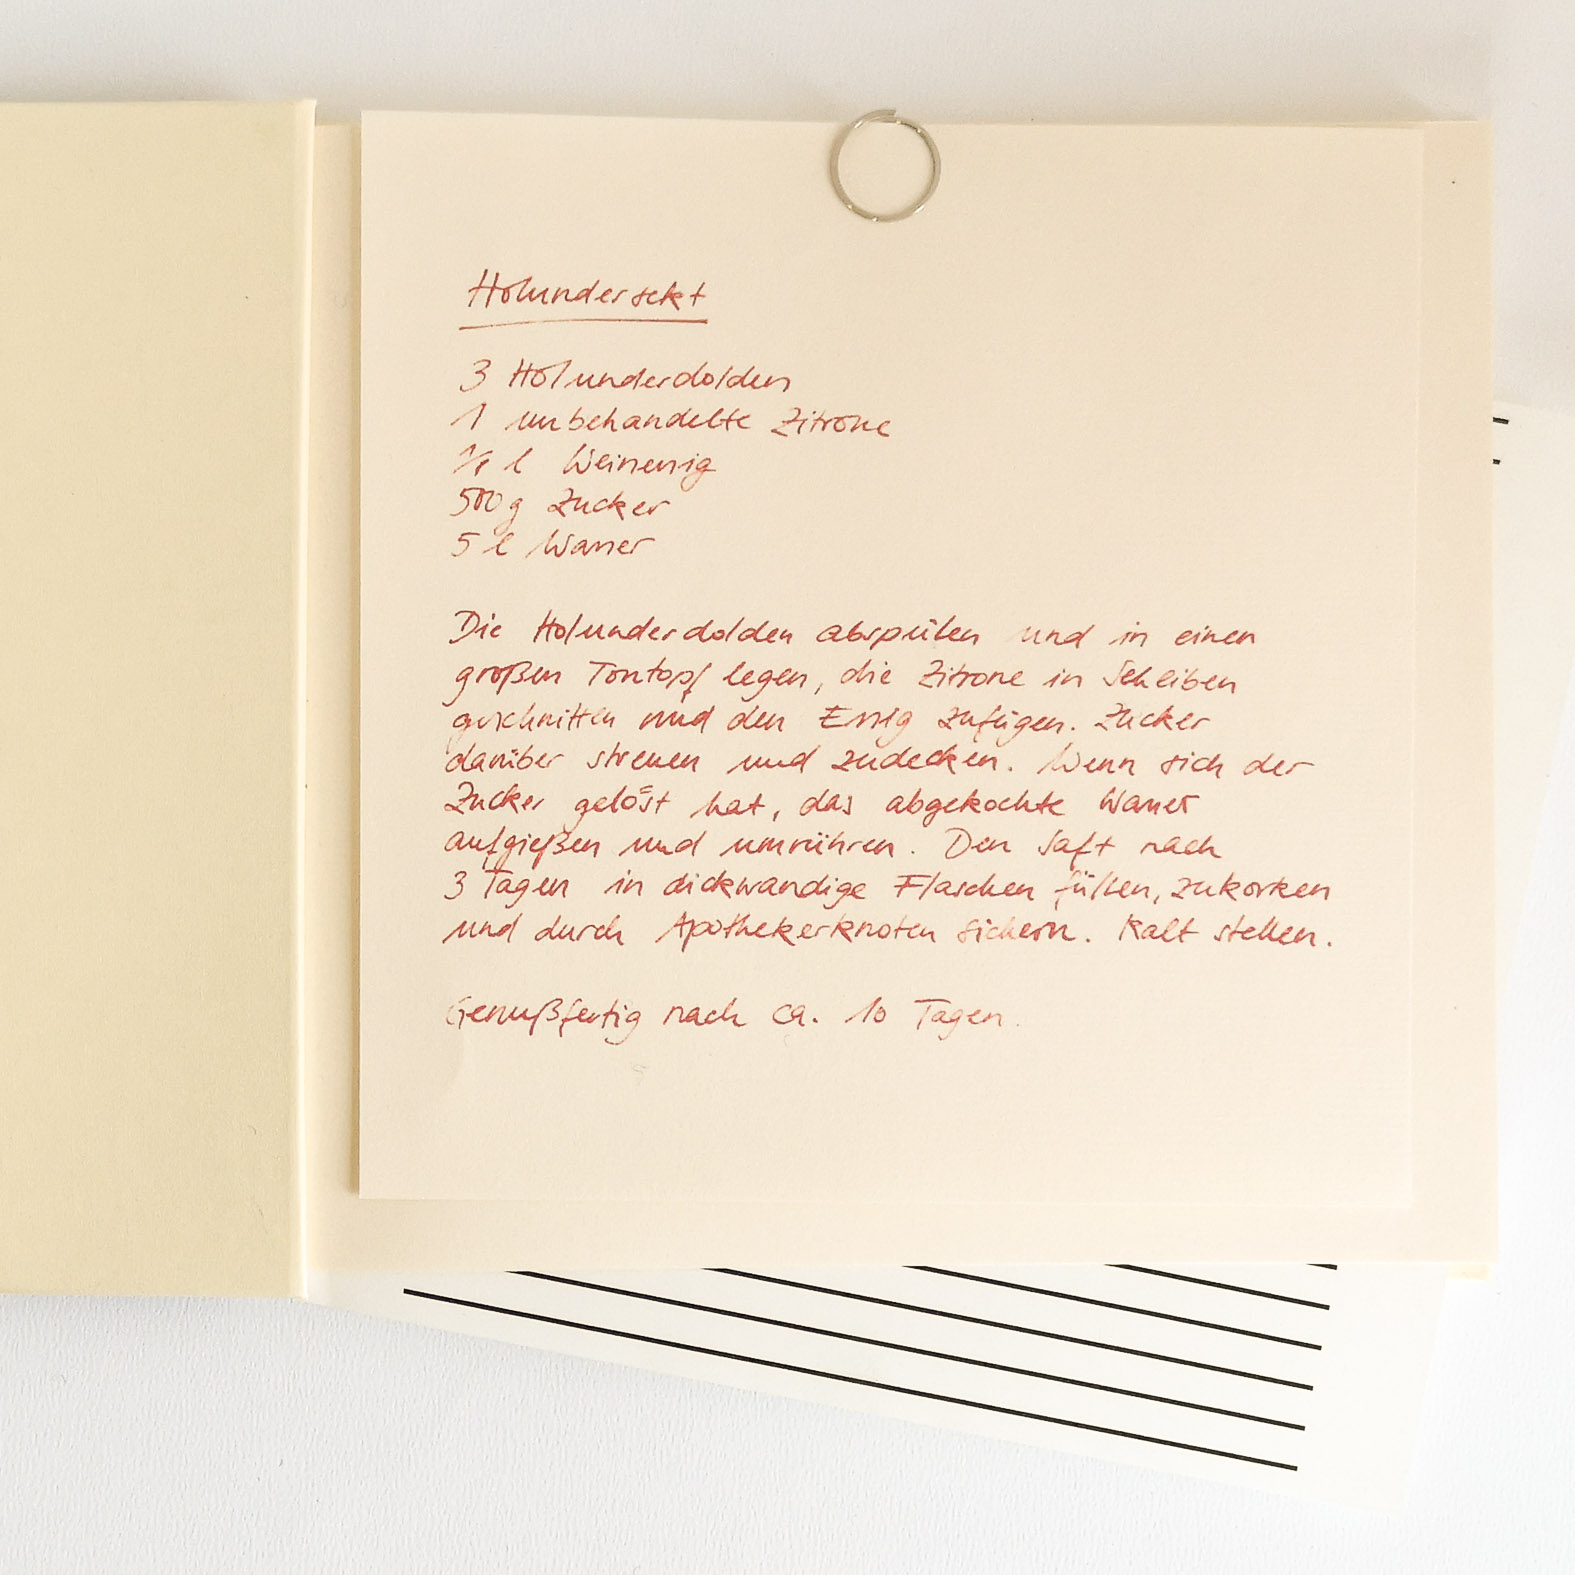 Holundersekt
3 Holunderdolden
1 unbehandelte Zitrone
l Weinessig
500g Zucker
5 l Wasser
Die Holunderdolden abspülen und in einen
großen Tontopf legen, die Zitrone in Scheiben
geschnitten und den Essig zufügen. Zucker
darüber streuen und zudecken. Wenn sich der
Zucker gelöst hat, das abgekochte Wasser
aufgießen und umrühren. Den Saft nach
3 Tagen in dickwandige Flaschen füllen, zukorken
und durch Apothekerknoten sichern. Kalt stellen.
Genußfertig nach ca. 10 Tagen.